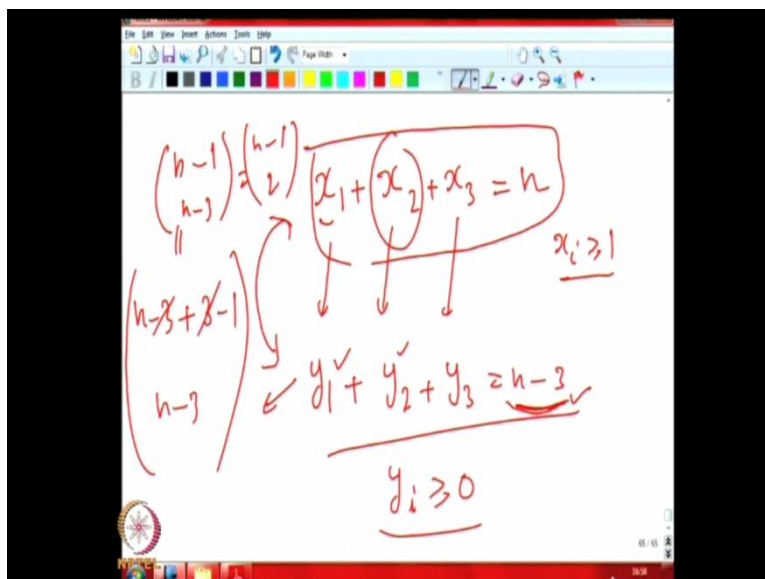 File Edit View Insert Actions Tools Help
Page Width
B I
(n-1 n-3) = (n-1 2)
x₁ + x₂ + x₃ = n
xᵢ ≥ 1
(n-3+3-1 n-3)
y₁ + y₂ + y₃ = n-3
yᵢ ≥ 0
65 / 65
NPTEL
16:50